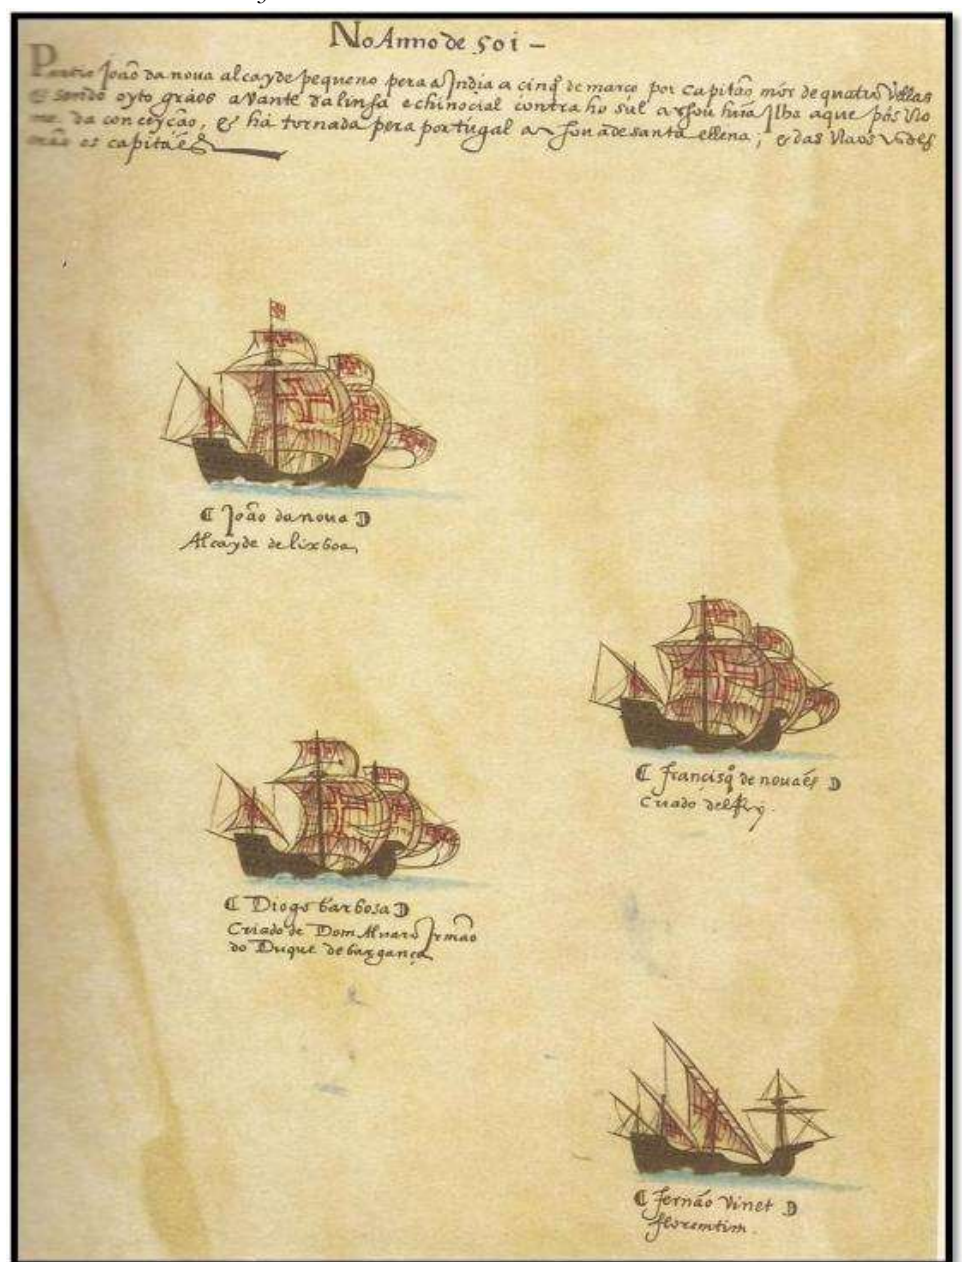 No Anno de 501 –
Partio João da nova alcayde pequeno pera a Jndia a cinq de março por capitão mór de quatro Vellas
& sendo oyto gráos avante da linha echinocial contra ho sul achou hũa Jlha a que pôs No
me da conceyção, & há tornada pera portugal achou a de santa ellena; & das Naos
os capitáẽs
João da nova
Alcayde de lixboa
francisqº de nouaés
Criado delRey.
Diogo barbosa
Criado de Dom Alvaro Jrmão
do Duque de bargança
fernão Vinet
florentim.